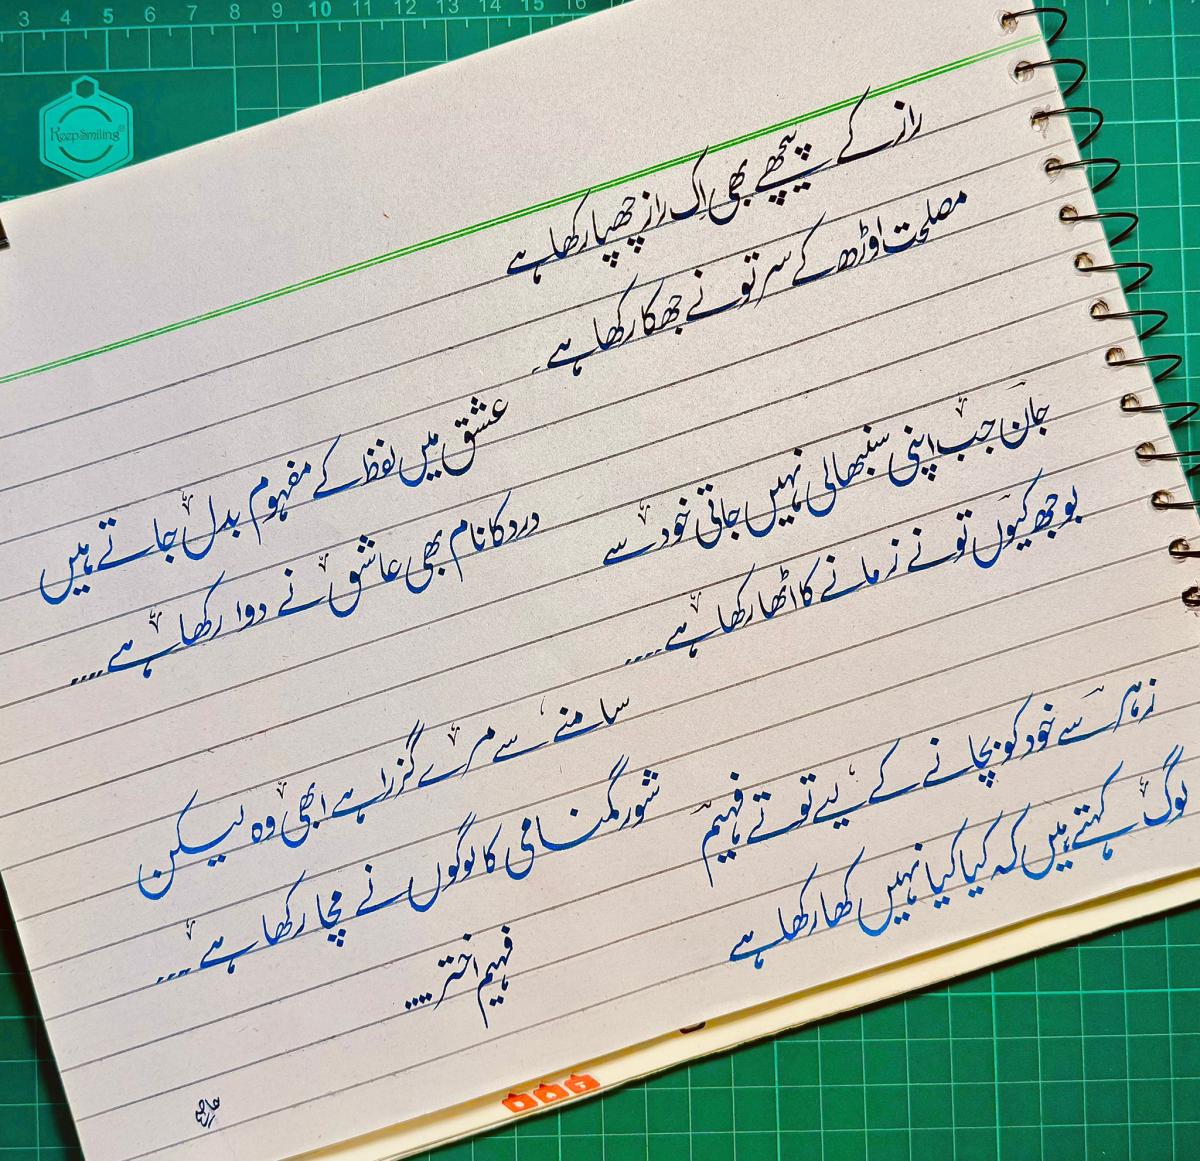 3 4 5 6 7 8 9 10 11 12 13 14 15 16
KeepSmiling
راز کے پیچھے بھی اک راز چھپا رکھا ہے
مصلحت اوڑھ کے سر تو نے جھکا رکھا ہے
جان جب اپنی سنبھالی نہیں جاتی خود سے
بوجھ کیوں تو نے زمانے کا اٹھا رکھا ہے....
عشق میں لفظ کے مفہوم بدل جاتے ہیں
درد کا نام بھی عاشق نے دوا رکھا ہے....
زہر سے خود کو بچانے کے لیے تو نے فہیم
لوگ کہتے ہیں کہ کیا کیا نہیں کھا رکھا ہے
سامنے سے مرے گزرا ہے ابھی وہ لیکن
شور گمنامی کا لوگوں نے مچا رکھا ہے....
فہیم اختر....